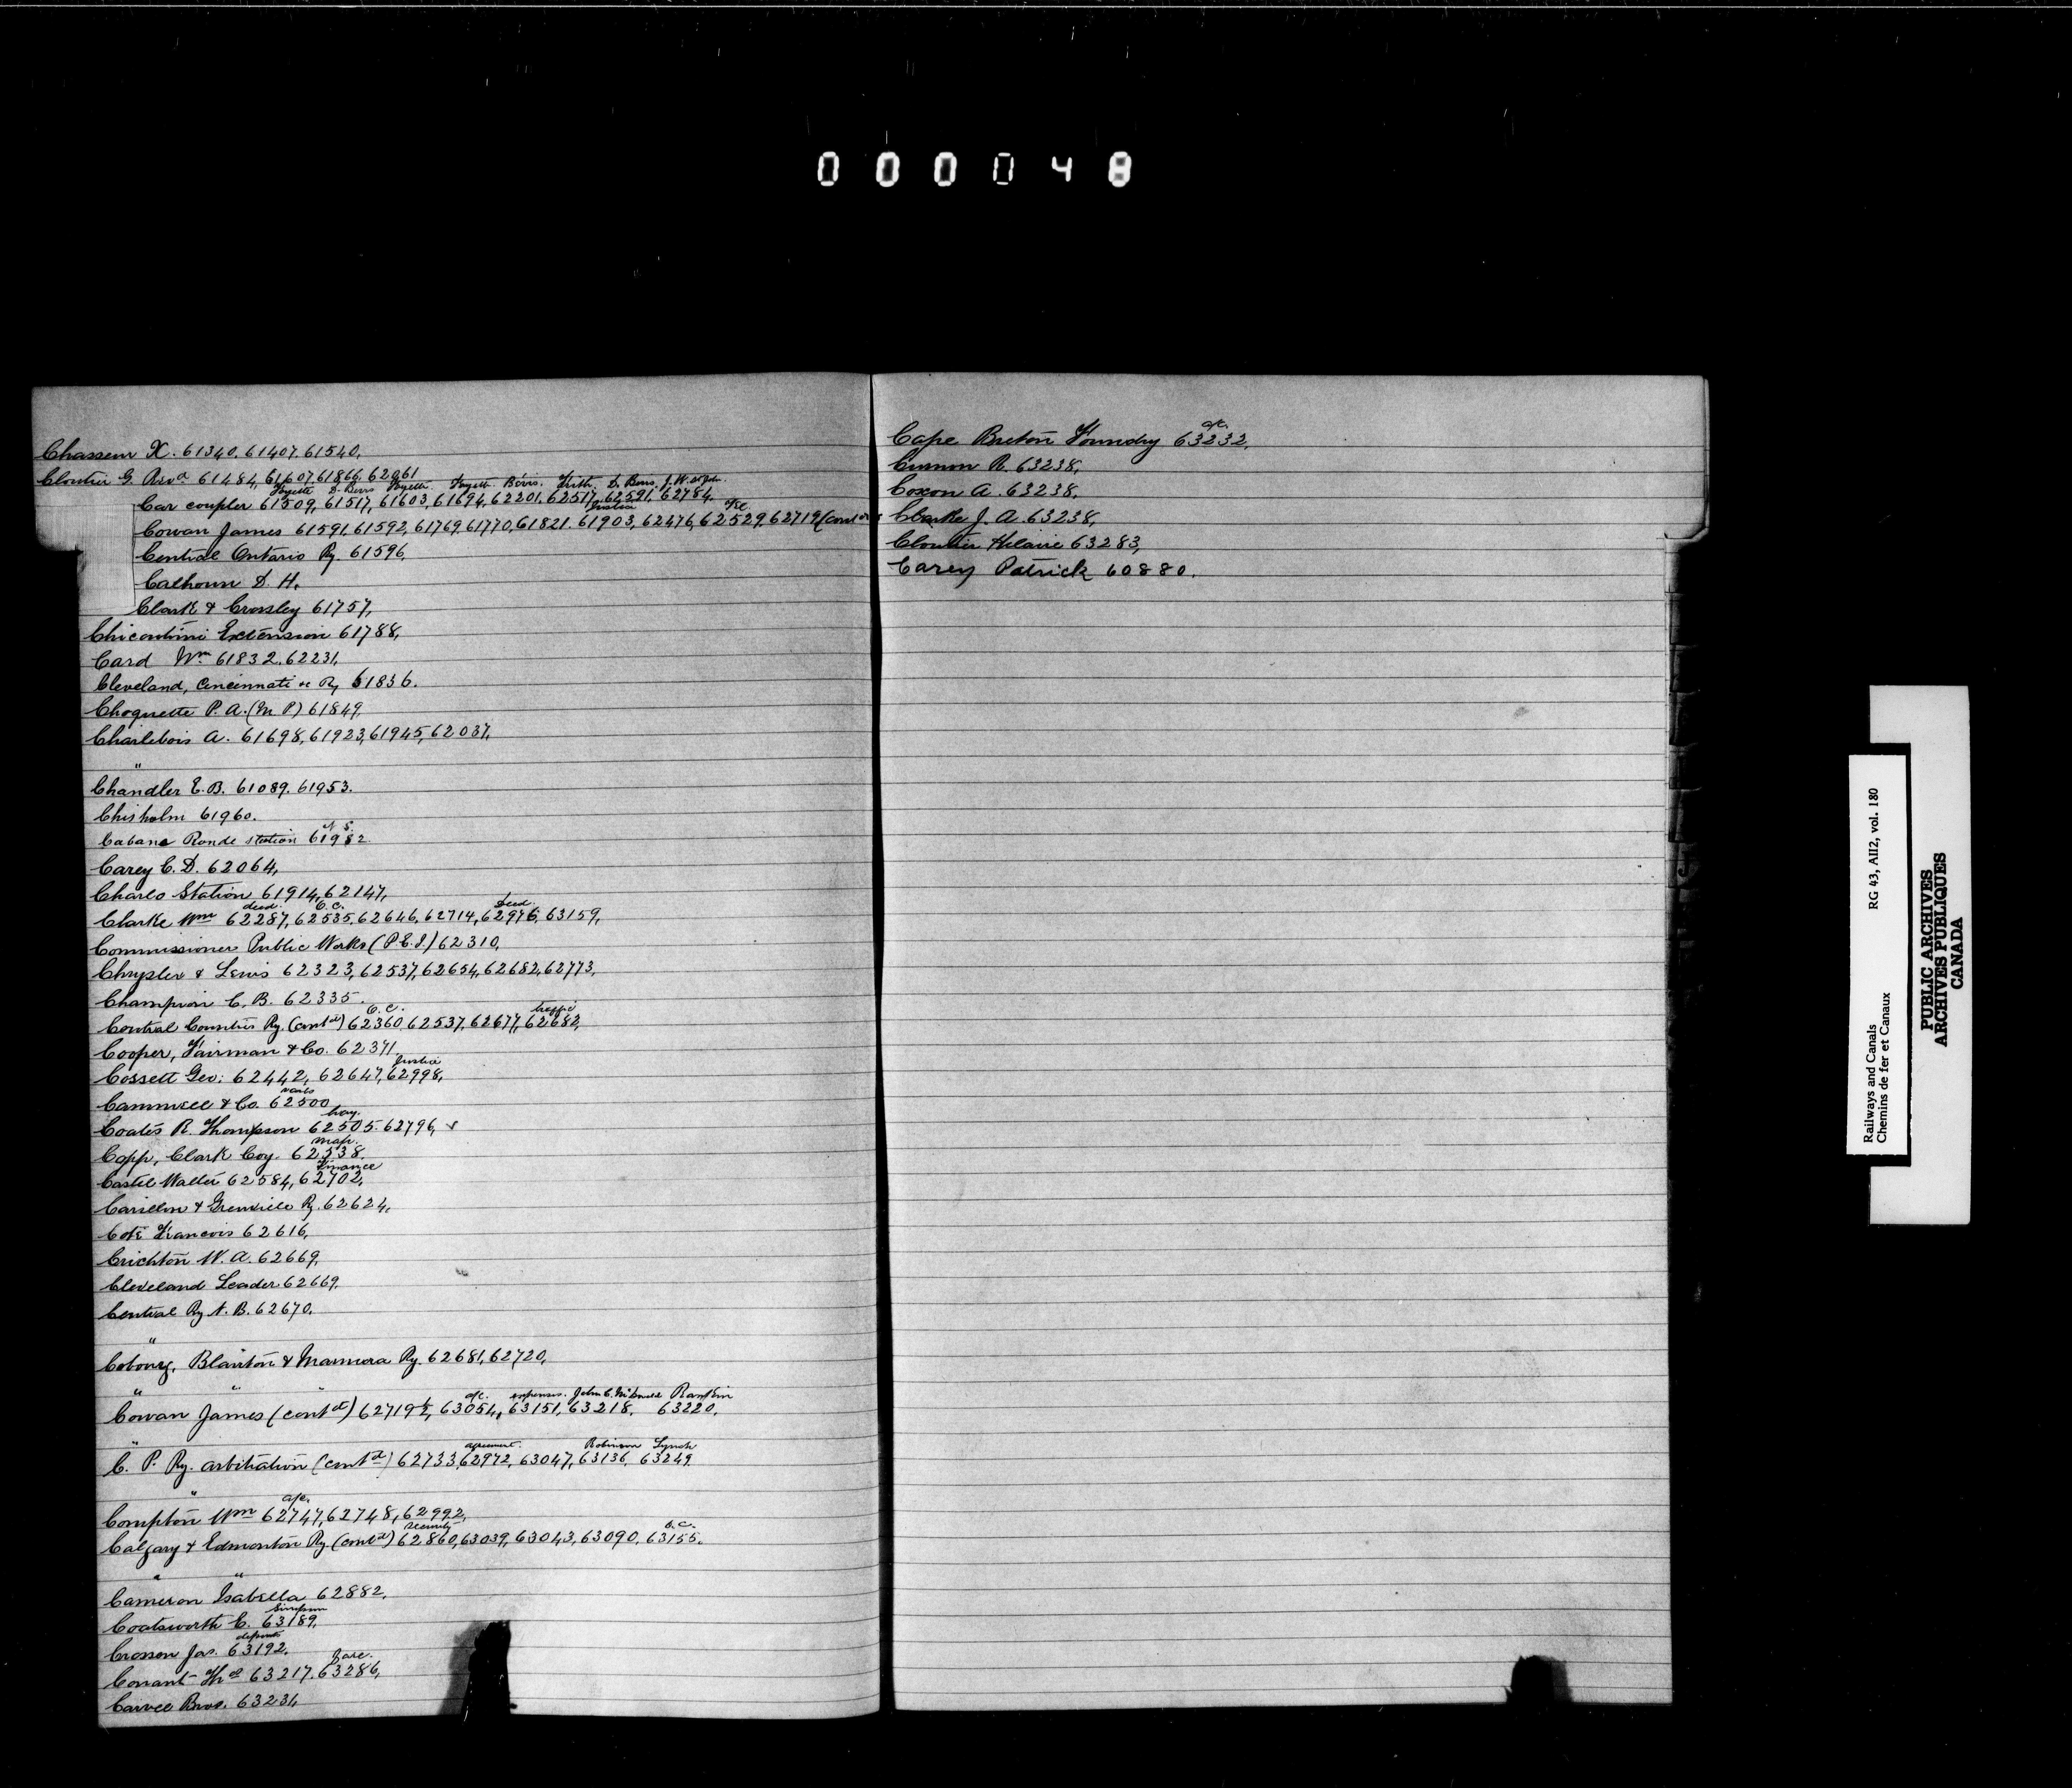 000048
Chasseur X. 61340, 61407, 61540,
Cloutier G. Revd 61484, 61607, 61866, 62061
Fayette D. Berris Fayette Fayette Bevis. Frith. D. Berris, J. W. St John
Car coupler 61509, 61517, 61603, 61694, 62201, 62517, 62591, 62784,
Justice a/c
Cowan James 61591, 61592, 61769, 61770, 61821. 61903, 62476, 62529, 62719 (cont
Central Ontario Ry. 61596,
Calhoun D. H.
Clark & Crossley 61757,
Chicoutimi Extension 61788,
Card Wm 61832, 62231,
Cleveland, Cincinnati &c Ry 61836.
Choquette P. A. (M. P) 61849,
Charlebois A. 61698, 61923, 61945, 62037,
"
Chandler E. B. 61089. 61953.
Chisholm 61960.
Cabane Ronde station 61982.
Carey C. D. 62064,
Charlo Station 61914, 62147,
deed. O.C. Deed.
Clarke Wm 62287, 62535, 62646, 62714, 62976, 63159,
Commissioner Public Works (P.E.I.) 62310,
Chrysler & Lewis 62323, 62537, 62654, 62682, 62773,
Champion C. B. 62335.
O. C. traffic
Central Counties Ry. (contd) 62360, 62537, 62677, 62682,
Cooper, Fairman & Co. 62371
Justice
Cossett Geo: 62442, 62647, 62998,
Cammell & Co. 62500
hay.
Coates R. Thompson 62505. 62796,
map.
Copp, Clark Coy. 62538.
Finance
Castle Walter 62584, 62702,
Carillon & Grenville Ry. 62624,
Coté Francois 62616,
Crichton W. A. 62669,
Cleveland Leader 62669,
Central Ry N. B. 62670,
"
Cobourg, Blairton & Marmora Ry. 62681, 62720,
" " "
a/c. expenses. John C. McDonald Rankin
Cowan James (contd) 62719½, 63054, 63151, 63218. 63220,
"
agreement. Robinson Lynch
C. P. Ry. arbitration (contd) 62733, 62972, 63047, 63136, 63249
"
a/c.
Compton Wm 62747, 62748, 62992,
security O.C.
Calgary & Edmonton Ry. (contd) 62860, 63039, 63043, 63090, 63155.
" "
Cameron Isabella 62882.
Simpson
Coatsworth E. 63189,
deposit
Crossen Jas. 63192.
Conant Thos 63217. 63286,
Carvell Bros. 63231,
a/c.
Cape Breton Foundry 63232,
R. 63238,
Coxon A. 63238,
Clarke J. A. 63238,
Cloutier Hilaire 63283,
Carey Patrick 60880.
Railways and Canals RG 43, AII2, vol. 180
Chemins de fer et Canaux
PUBLIC ARCHIVES
ARCHIVES PUBLIQUES
CANADA